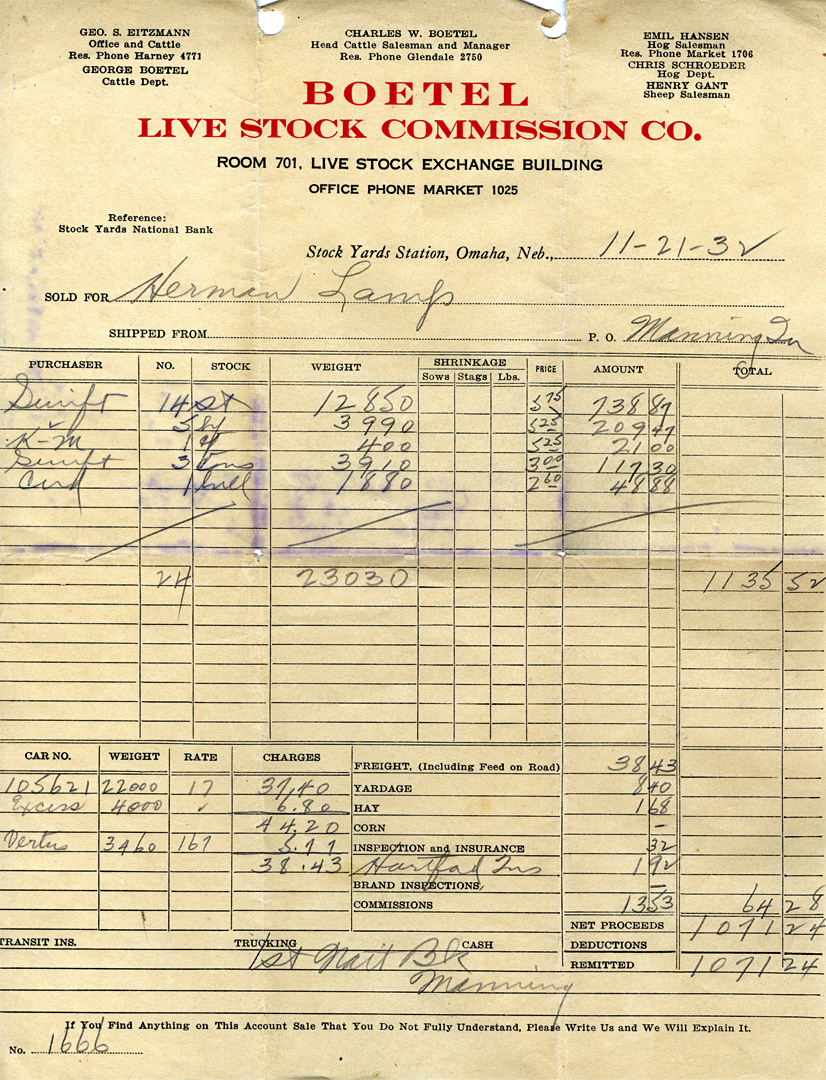 GEO. S. EITZMANN
Office and Cattle
Res. Phone Harney 4771
GEORGE BOETEL
Cattle Dept.
CHARLES W. BOETEL
Head Cattle Salesman and Manager
Res. Phone Glendale 2750
EMIL HANSEN
Hog Salesman
Res. Phone Market 1706
CHRIS SCHROEDER
Hog Dept.
HENRY GANT
Sheep Salesman
BOETEL
LIVE STOCK COMMISSION CO.
ROOM 701, LIVE STOCK EXCHANGE BUILDING
OFFICE PHONE MARKET 1025
Reference:
Stock Yards National Bank
Stock Yards Station, Omaha, Neb., 11-21-32
SOLD FOR Herman Lamp
SHIPPED FROM P. O. Manning Ia
PURCHASER NO. STOCK WEIGHT SHRINKAGE PRICE AMOUNT TOTAL
Sows Stags Lbs.
Swift 14 st 12850 5 75 738 87
5 hf 3990 5 25 209 47
K-M 1 hf 400 5 25 21 00
Swift 3 cows 3910 3 00 117 30
1 bull 1880 2 60 48 88
24 23030 1135 52
CAR NO. WEIGHT RATE CHARGES
FREIGHT, (Including Feed on Road) 38 43
105621 22000 17 37.40 YARDAGE 8 40
Excess 4000 ✓ 6.80 HAY 1 68
44.20 CORN –
3460 167 5.77 INSPECTION and INSURANCE 32
38.43 Hartford Ins 1 92
BRAND INSPECTIONS –
COMMISSIONS 13 53 64 28
NET PROCEEDS 1071 24
TRANSIT INS. TRUCKING CASH DEDUCTIONS
1st Natl Bk REMITTED 1071 24
Manning
If You Find Anything on This Account Sale That You Do Not Fully Understand, Please Write Us and We Will Explain It.
No. 1666